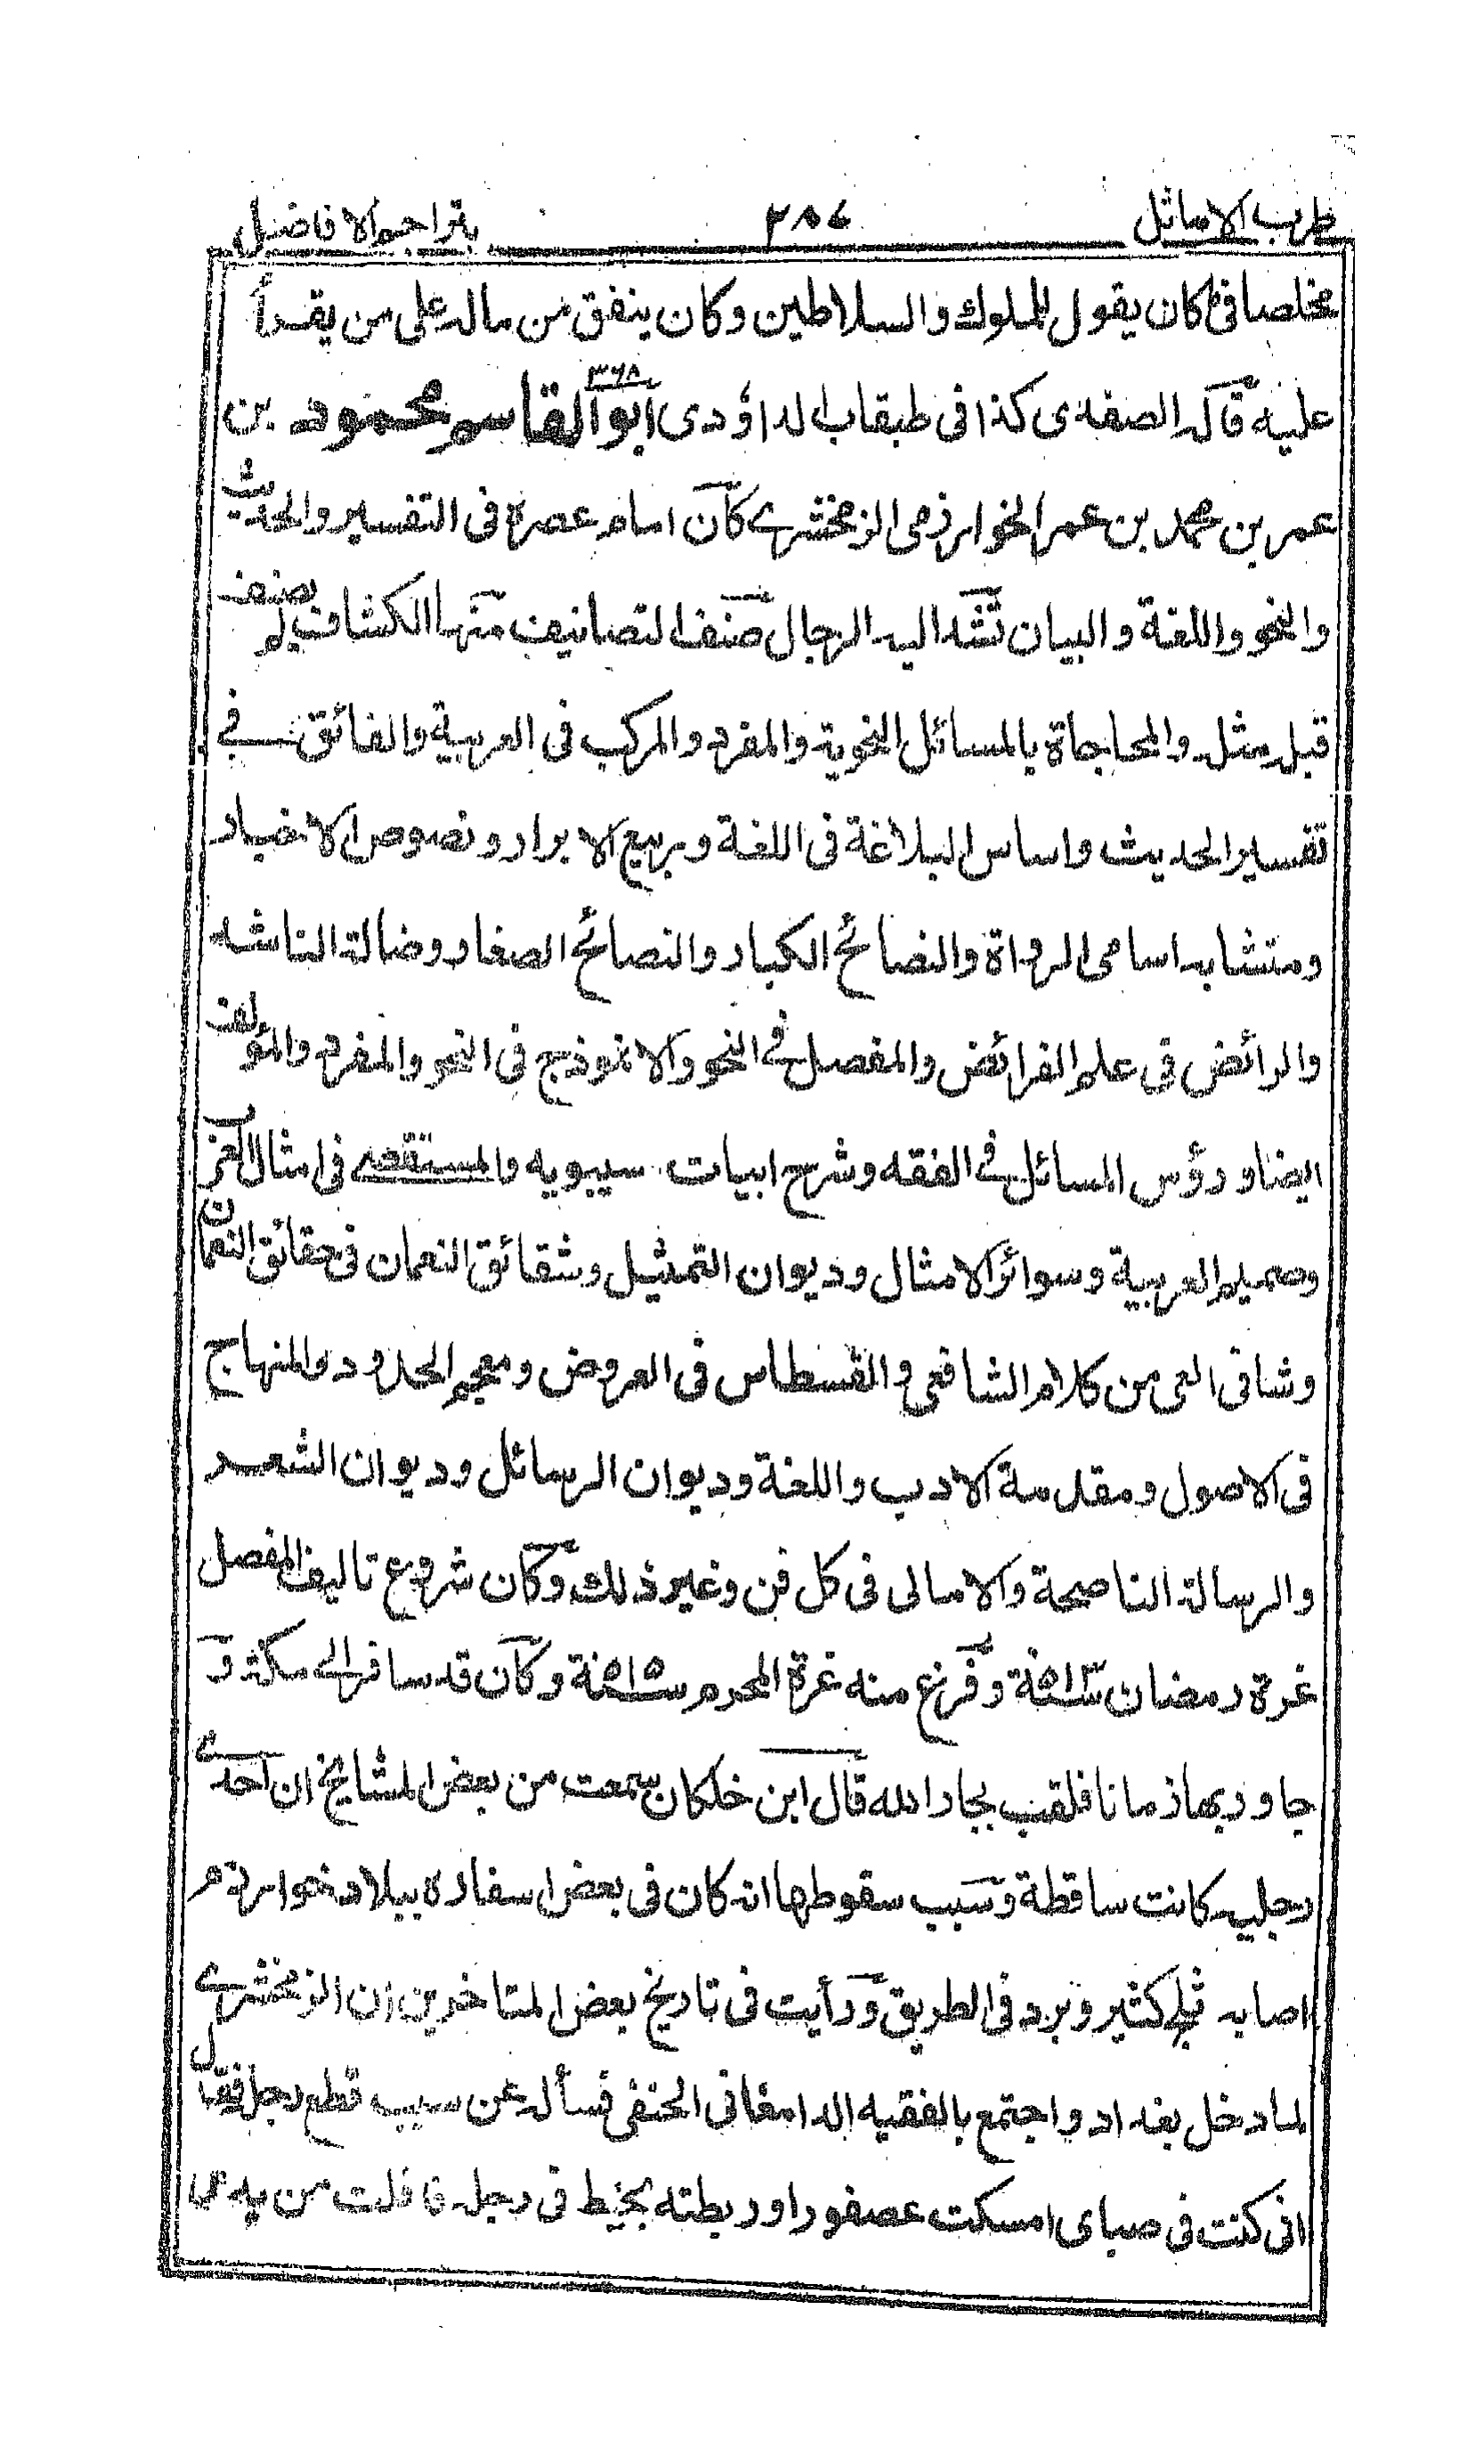 طرب الاماثل ٢٨٤ بتراجم الافاضل
مخلصا فى كان يقول للملوك والسلاطين وكان ينفق من ماله على من يقرأ
عليه قاله الصفدى كذا فى طبقات الداؤدى ٣٦٨ ابو القاسم محمود بن
عمر بن محمد بن عمر الخوارزمى الزمخشرے كان امام عصره فى التفسير والحديث
والنحو واللغة والبيان تشد اليه الرحال صنف التصانيف منها الكشاف لم يصنف
قبله مثله والمحاجاة بالمسائل النحوية والمفرد والمركب فى العربية والفائق فے
تفسير الحديث واساس البلاغة فى اللغة وربيع الابرار ونصوص الاخبار
ومتشابه اسامى الرواة والنصائح الكبار والنصائح الصغار وضالة الناشد
والرائض فى علم الفرائض والمفصل فے النحو والانموذج فى النحو والمفرد والمؤلف
ايضا ورؤس المسائل فے الفقه وشرح ابيات سيبويه والمستقصے فى امثال العرب
وصميم العربية وسوائر الامثال وديوان التمثيل وشقائق النعمان فى حقائق النعمان
وشافى العى من كلام الشافعى والقسطاس فى العروض ومعجم الحدود والمنهاج
فى الاصول ومقدمة الادب واللغة وديوان الرسائل وديوان الشعر
والرسالة الناصحة والامالى فى كل فن وغير ذلك وكان شروع تاليف المفصل
غرة رمضان سنة ٥١٣ وفرغ منه غرة المحرم سنة ٥١٥ وكان قد سافر الى مكة و
جاور بها زمانا فلقب بجار الله قال ابن خلكان سمعت من بعض المشايخ ان احدے
رجليه كانت ساقطة وسبب سقوطها انه كان فى بعض اسفاره ببلاد خوارزم
اصابه ثلج كثير وبرد فى الطريق ورأيت فى تاريخ بعض المتاخرين ان الزمخشرے
لما دخل بغداد واجتمع بالفقيه الدامغانى الحنفى فسأله عن سبب قطع رجله فقال
انى كنت فى صباى امسكت عصفورا وربطته بخيط فى رجله فافلت من يدى